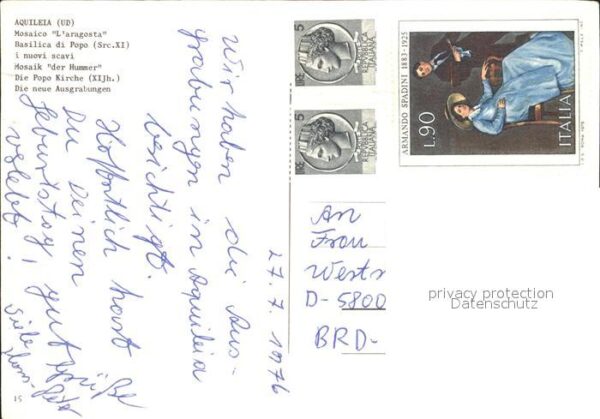 AQUILEIA (UD)
Mosaico "L'aragosta"
Basilica di Popo (Src.XI)
i nuovi scavi
Mosaik "der Hummer"
Die Popo Kirche (XIjh.)
Die neue Ausgrabungen
27.7.1976
Wir haben die Aus-
grabungen in Aquileia
besichtigt.
Hoffentlich hast
Du Deinen
Geburtstag gut
verlebt!
Viele Grüße
Hans-Peter
15
5
REPUBBLICA
ITALIANA
5
REPUBBLICA
ITALIANA
ARMANDO SPADINI 1883-1925
L.90
ITALIA
An
Frau
D-5800
BRD-
privacy protection
Datenschutz